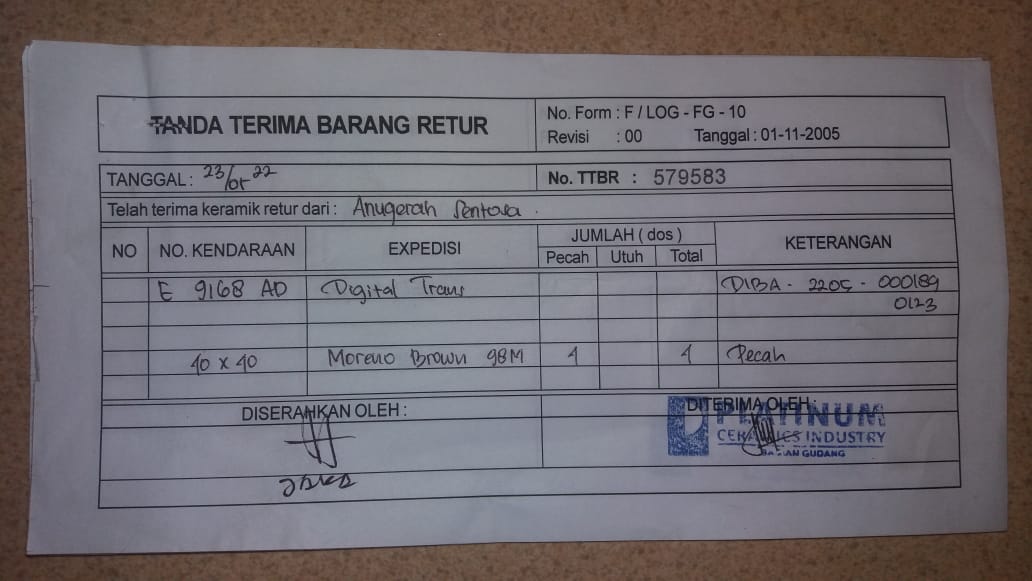 TANDA TERIMA BARANG RETUR
No. Form : F / LOG - FG - 10
Revisi : 00 Tanggal : 01-11-2005
TANGGAL : 23/05 22
No. TTBR : 579583
Telah terima keramik retur dari : Anugerah Sentosa .
NO NO. KENDARAAN EXPEDISI JUMLAH ( dos ) KETERANGAN
Pecah Utuh Total
E 9168 AD Digital Trans DIBA - 2205 - 000189
0123
40 x 40 Moreno Brown 98M 4 4 Pecah
DISERAHKAN OLEH : DITERIMA OLEH :
PLATINUM
CERAMICS INDUSTRY
BAGIAN GUDANG